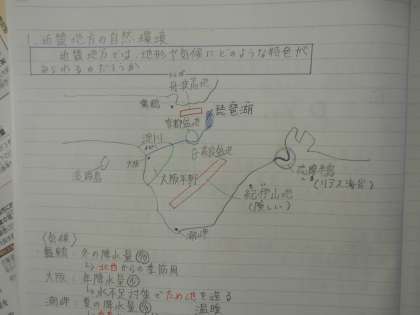 1. 近畿地方の自然環境
近畿地方では、地形や気候にどのような特色が
みられるのだろうか
丹波高地
舞鶴
琵琶湖
京都盆地
淀川
奈良盆地
大阪
淡路島
大阪平野
志摩半島
(リアス海岸)
紀伊山地
(険しい)
潮岬
(気候)
舞鶴：冬の降水量㊛
↳北西からの季節風
大阪：年降水量
↳水不足対策でため池を造る
潮岬：夏の降水量
温暖